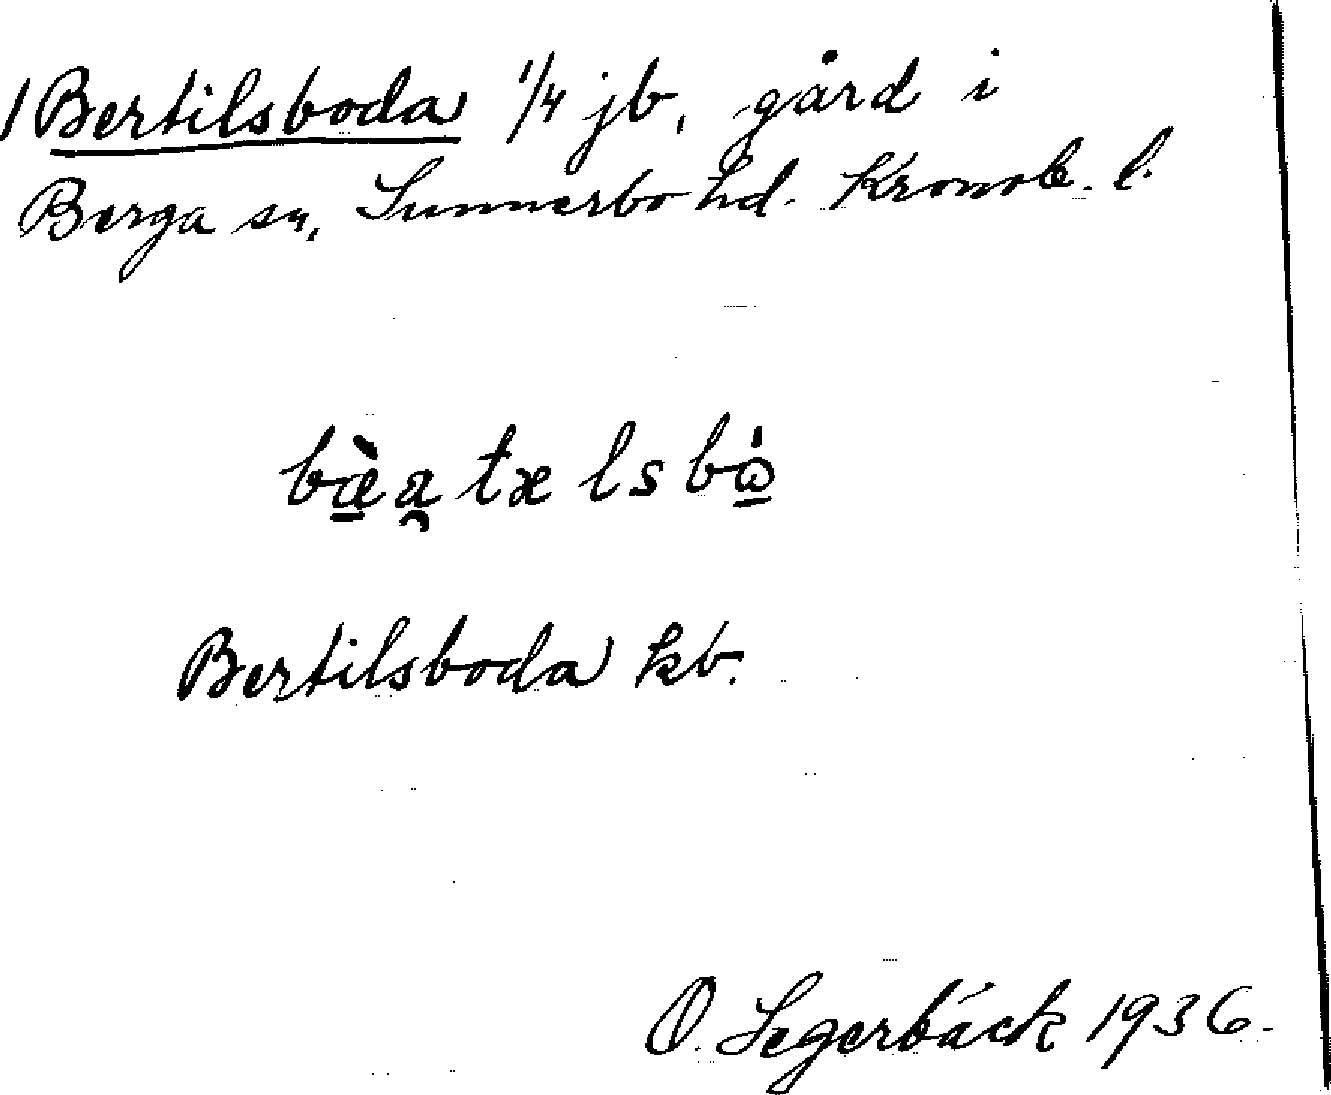 1 Bertilsboda 1/4 jb, gård i
Berga sn, Sunnerbo hd. Kronob. l.
bæ̱̀a̯tælsbω̱̇
Bertilsboda kb.
O. Segerbäck 1936.